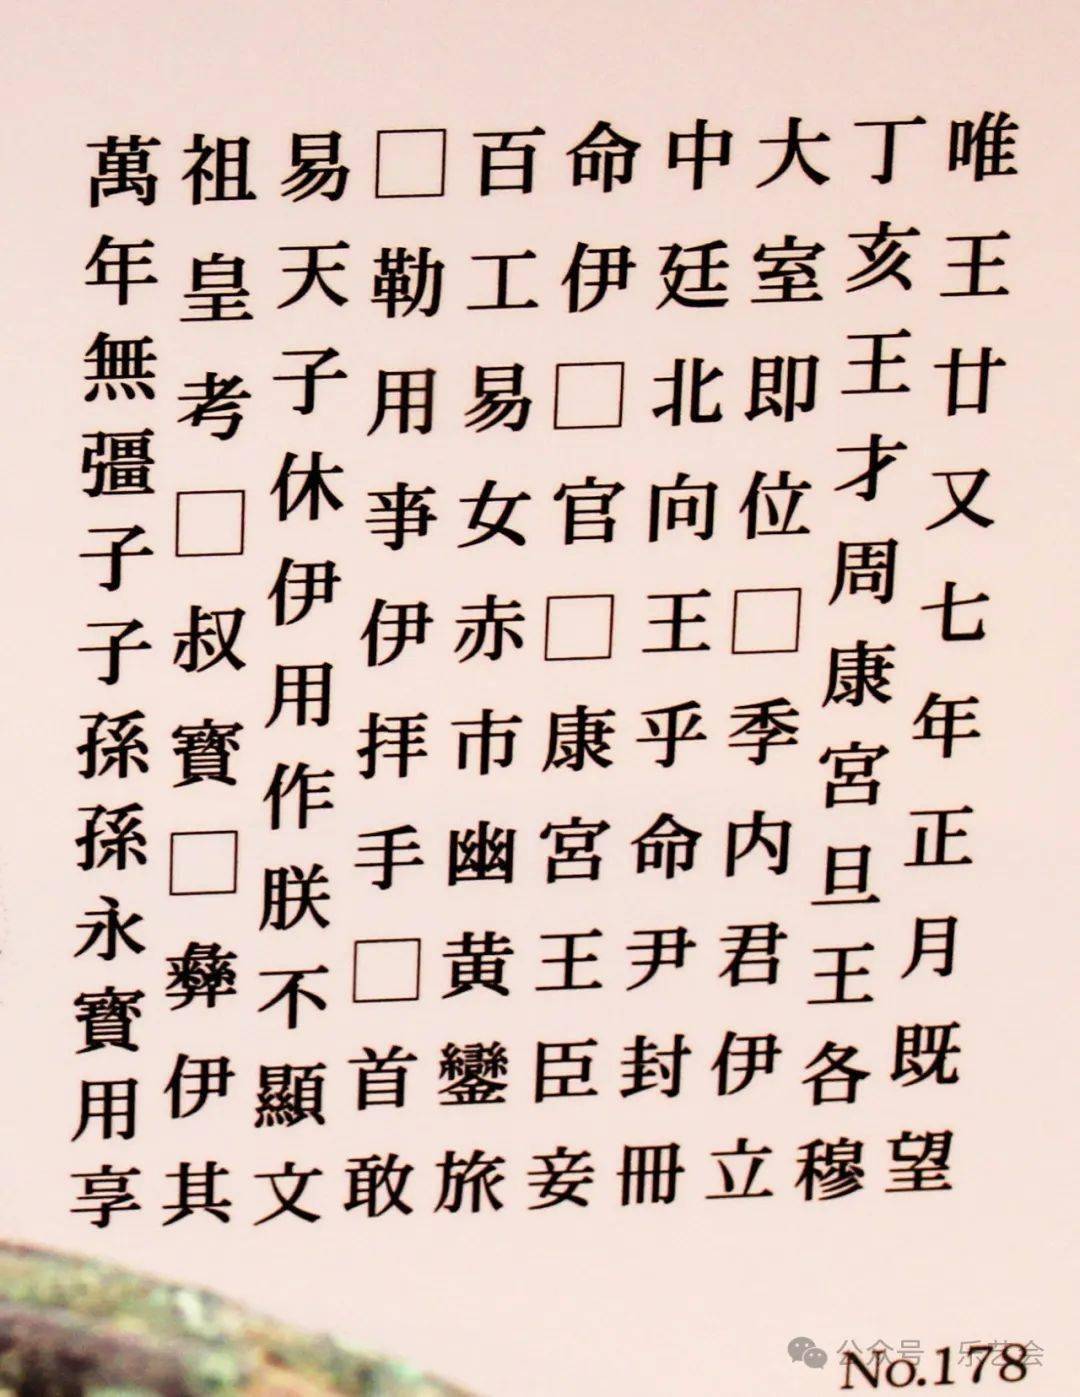 唯王廿又七年正月既望
丁亥王才周康宮旦王各穆
大室即位□季内君伊立
中廷北向王乎命尹封冊
命伊□官□康宮王臣妾
百工易女赤市幽黄鑾旅
□勒用事伊拝手□首敢
易天子休伊用作朕不顯文
祖皇考□叔寶□彝伊其
萬年無彊子子孫孫永寶用享
No.178
公众号 · 乐艺会